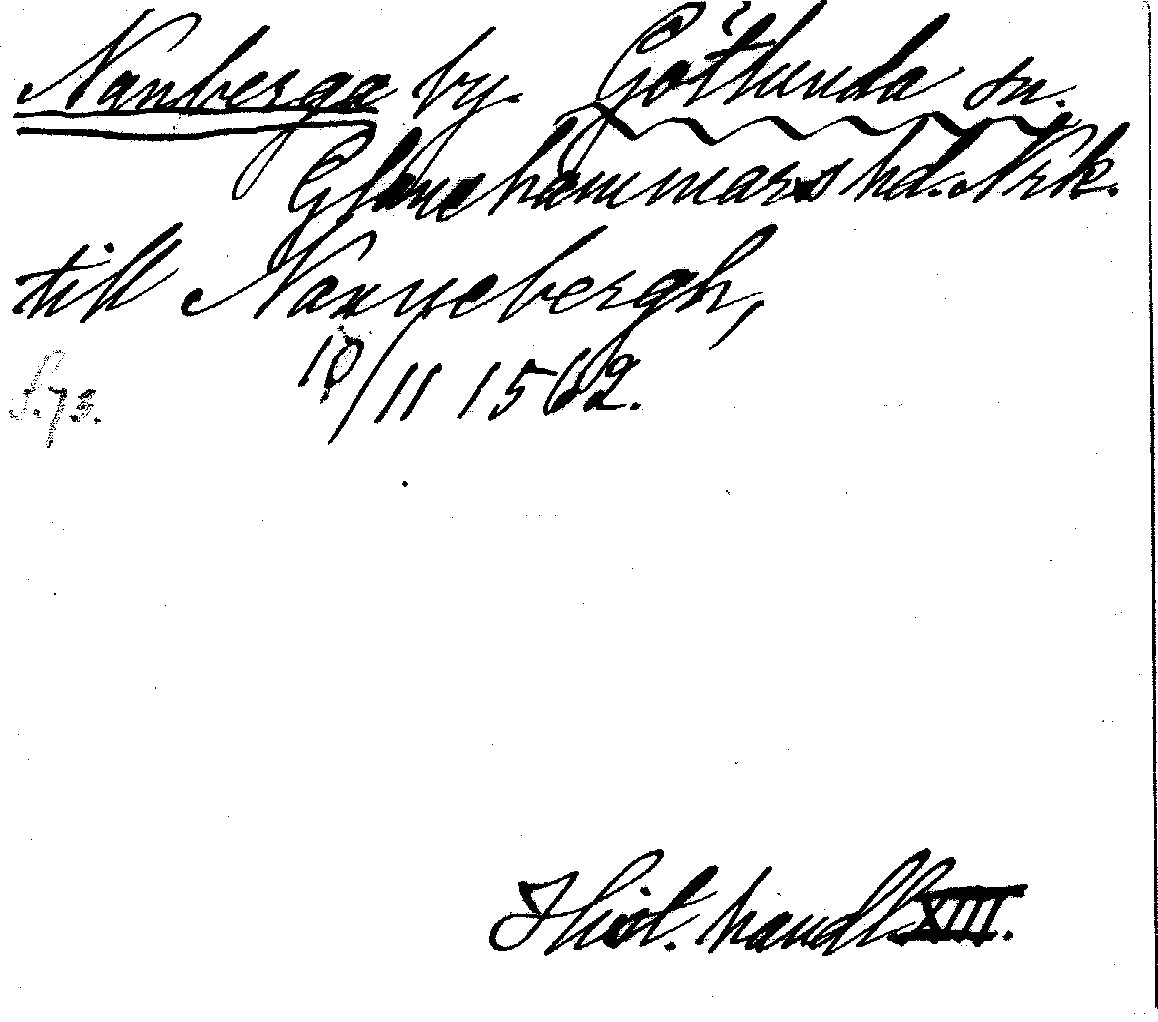 Nanberga by. Götlunda sn.
Glanshammars hd. Nrk.
till Naxnebergh,
10/11 1562.
S. 73.
Hist. handl. XIII.